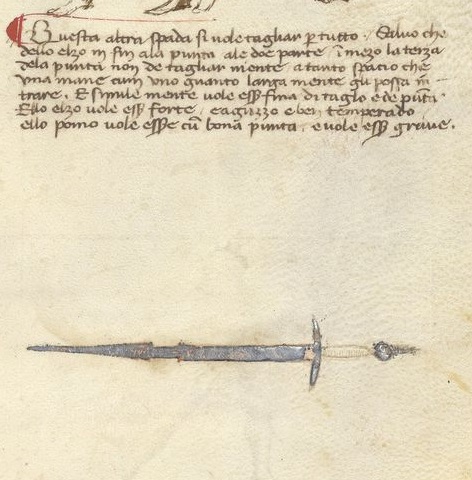 Questa altra spada si vole tagliar p tutto. Salvo che
dello elzo in fin ala punta ale doe parte, i mezo la terza
dela punta non de tagliar mente. atanto spacio che
una mane cum uno guanto larga mente gli possa in
trare. E simile mente vole ess fina di taglo e de puta
Ello elzo vole ess forte, e aguzzo e ben temperado
ello pomo vole esse cu bona punta. e vole ess grave.